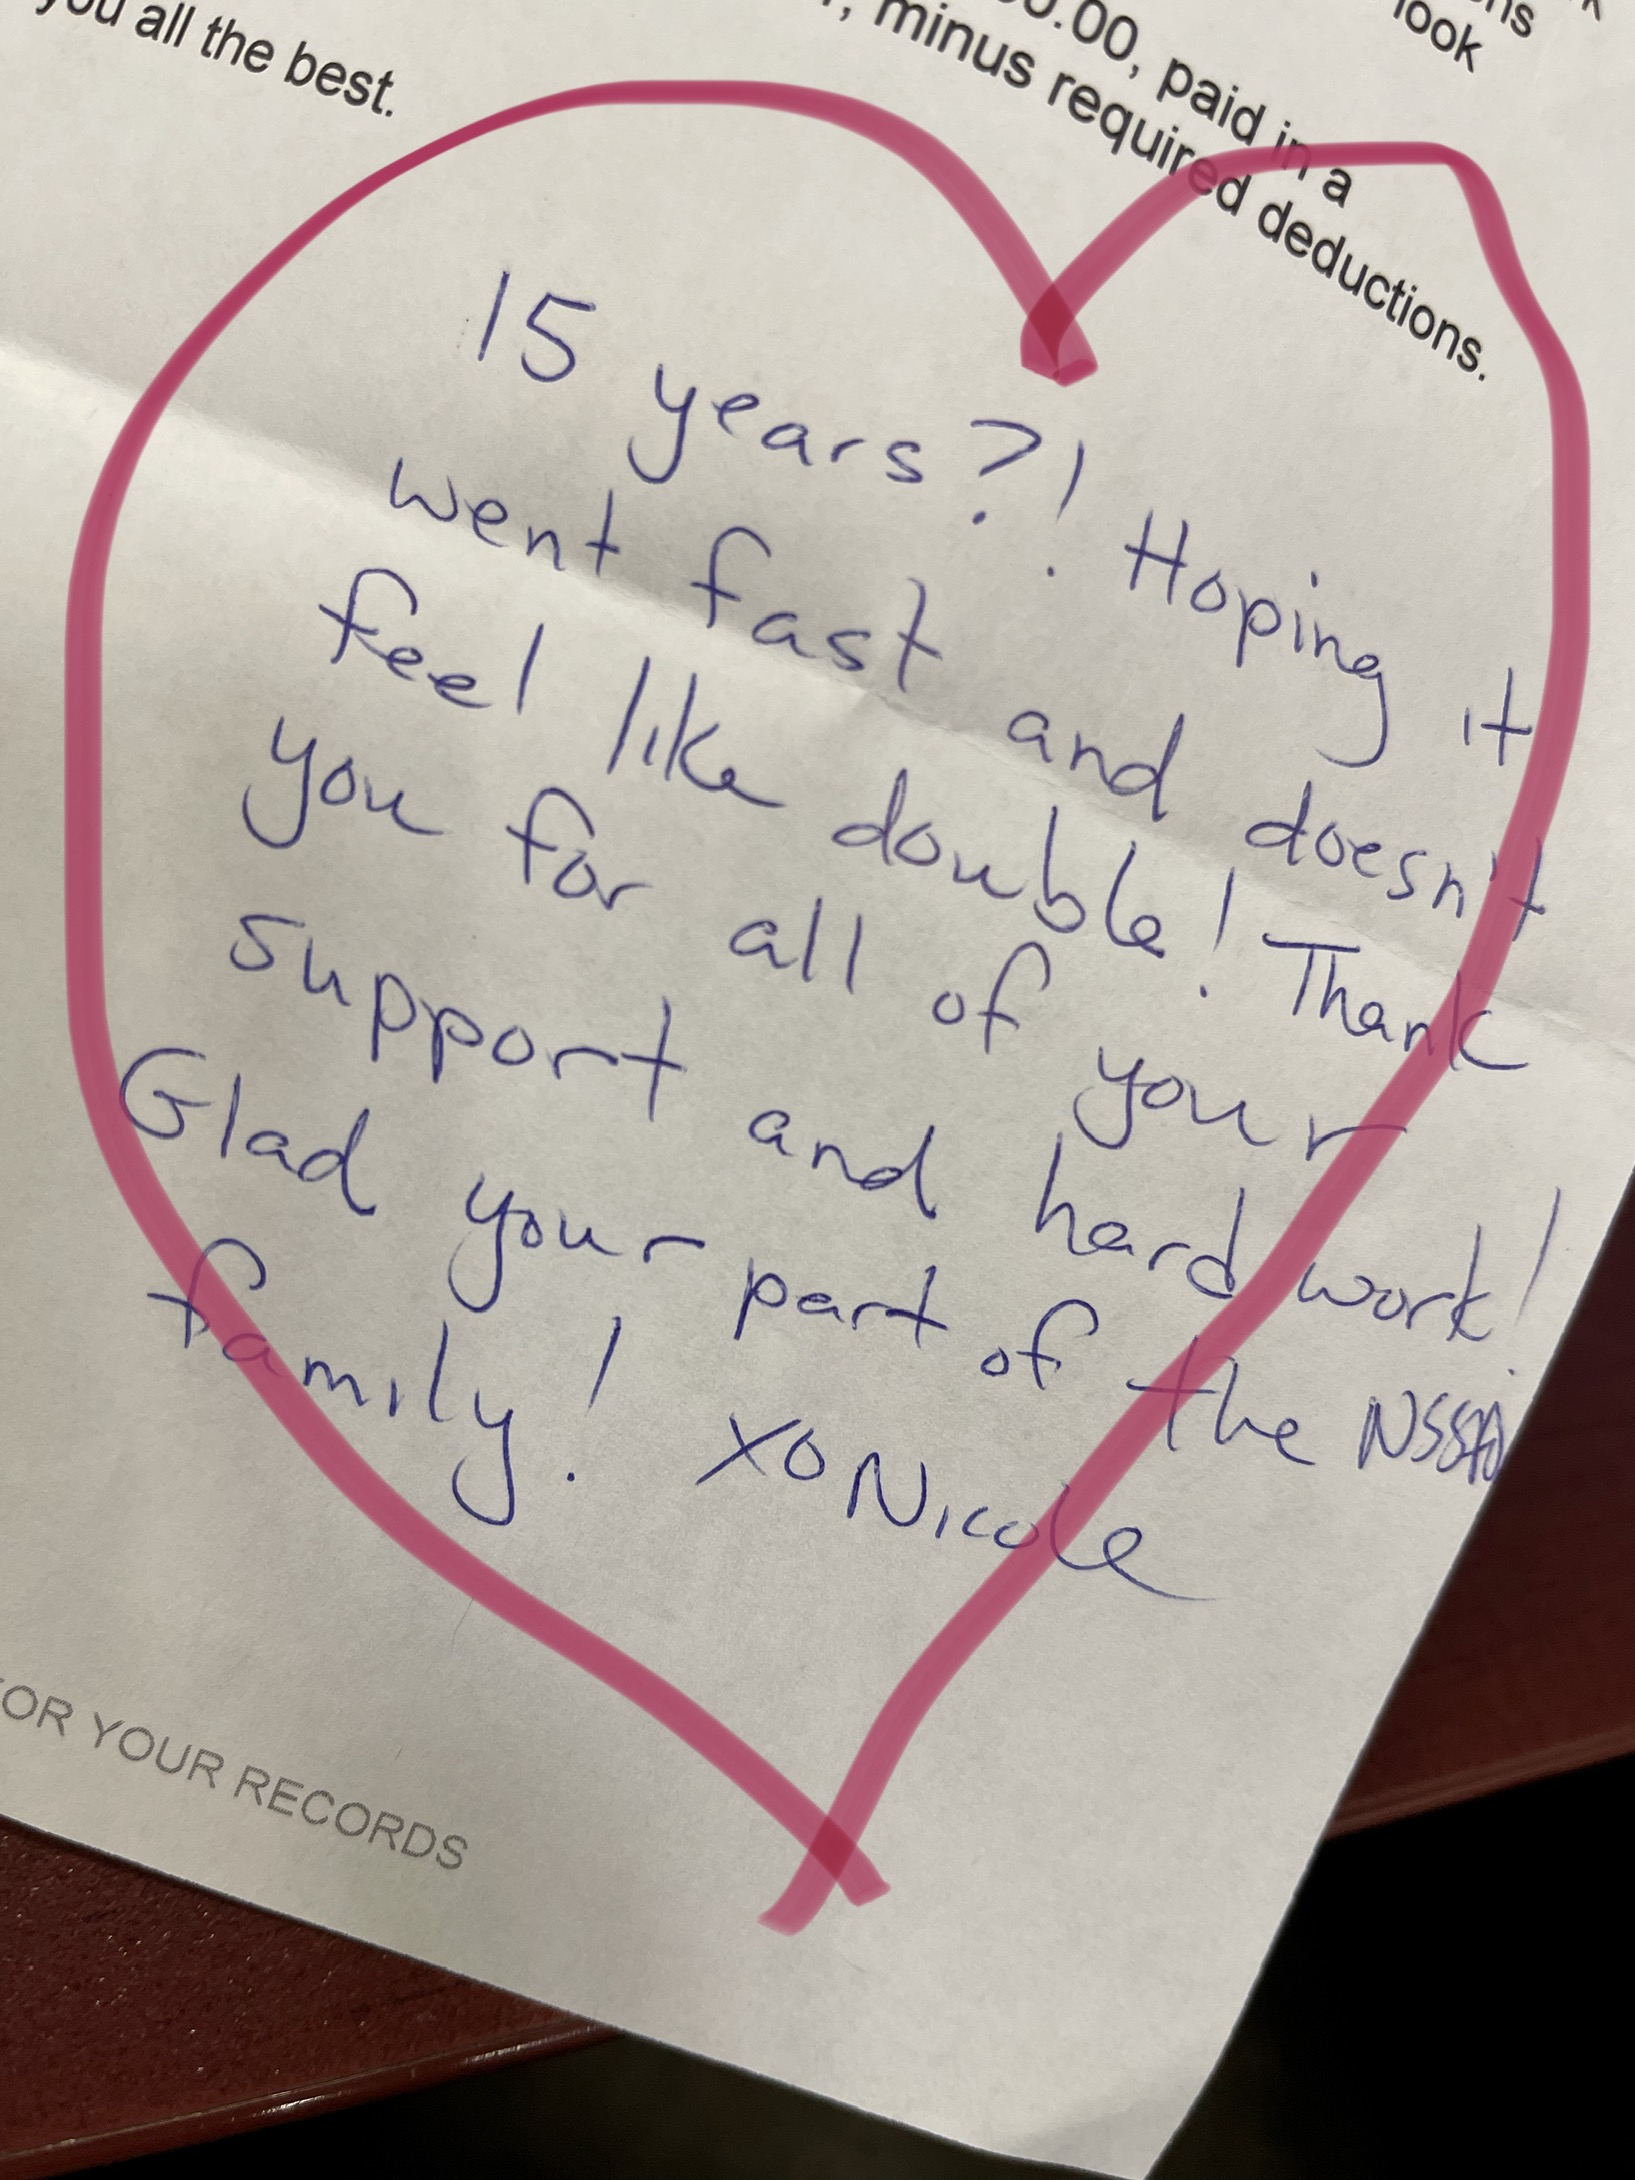 you all the best.
ns
look
0.00, paid in a
, minus required deductions.
15 years?! Hoping it
went fast and doesn't
feel like double! Thank
you for all of your
support and hard work!
Glad your part of the
family! XO Nicole
FOR YOUR RECORDS